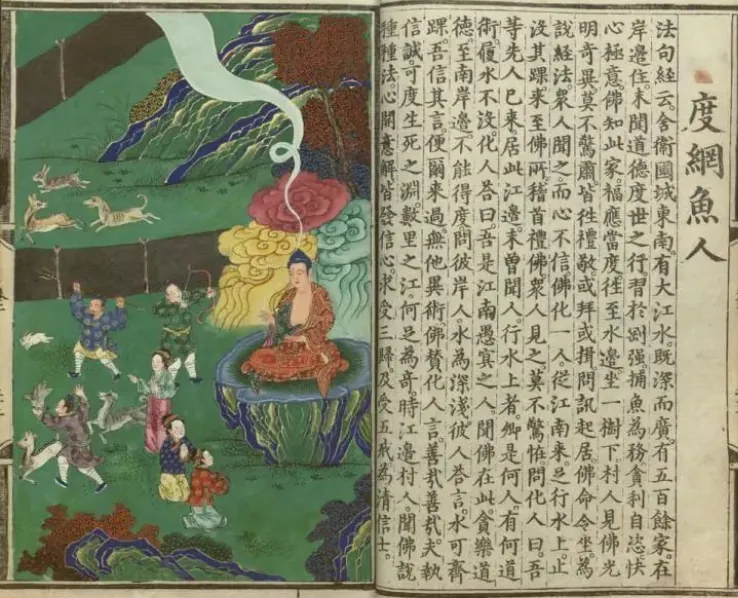 度網魚人
法句經云。舍衛國城東南。有大江水。既深而廣。有五百餘家。在
岸邊住。未聞道德度世之行。習於剛强。捕魚為務。貪利自恣。快
心極意。佛知此家。福應當度。往至水邊。坐一樹下。村人見佛光
明奇異。莫不驚肅。皆往禮敬。或拜或揖。問訊起居。佛命令坐。為
說經法。衆人聞之。而心不信。佛化一人。從江南來。足行水上。止
沒其踝。來至佛所。稽首禮佛。衆人見之。莫不驚怪。問化人曰。吾
等先人已來。居此江邊。未曾聞人。行水上者。卿是何人。有何道
術。履水不沒。化人荅曰。吾是江南愚冥之人。聞佛在此。貪樂道
德。至南岸邊。不能得度。問彼岸人。水為深淺。彼人荅言。水可齊
踝。吾信其言。便爾來過。無他異術。佛贊化人言。善哉善哉。夫執
信誠。可度生死之淵。數里之江。何足為奇。時江邊村人。聞佛說
種種法。心開意解。皆發信心。求受三歸。及受五戒。為清信士。